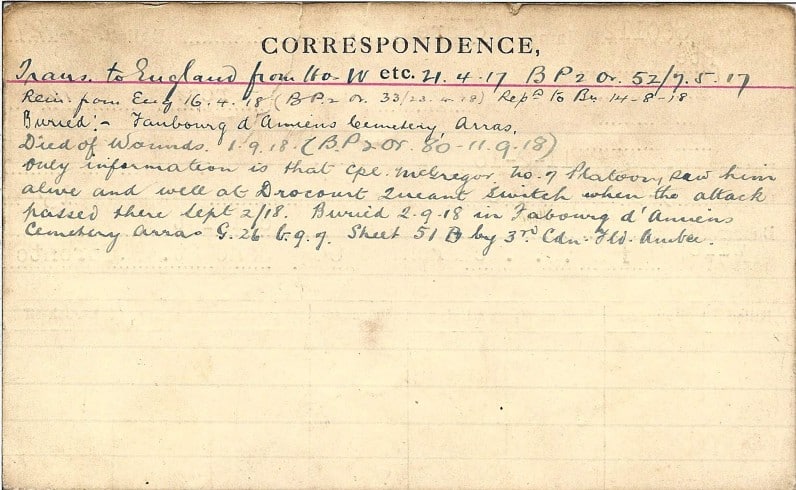 CORRESPONDENCE,
Trans. to England from Ho. W etc. 21.4.17 B P 2 Or. 52/7.5.17
Rein from Eng 16.4.18 (B.P.2 Or. 33/23.4.18) Rep^d to Bn 14-8-18
Buried:- Faubourg d'Amiens Cemetery, Arras.
Died of Wounds. 1.9.18. (B.P 2 Or. 80-11.9.18)
Only information is that Cpl. McGregor No. 7 Platoon, saw him
alive and well at Drocourt Queant Switch when the attack
passed there Sept 2/18. Buried 2-9-18 in Fabourg d'Amiens
Cemetery Arras G. 26 b.9.7. Sheet 51 B by 3rd Cdn. Fld. Ambce.